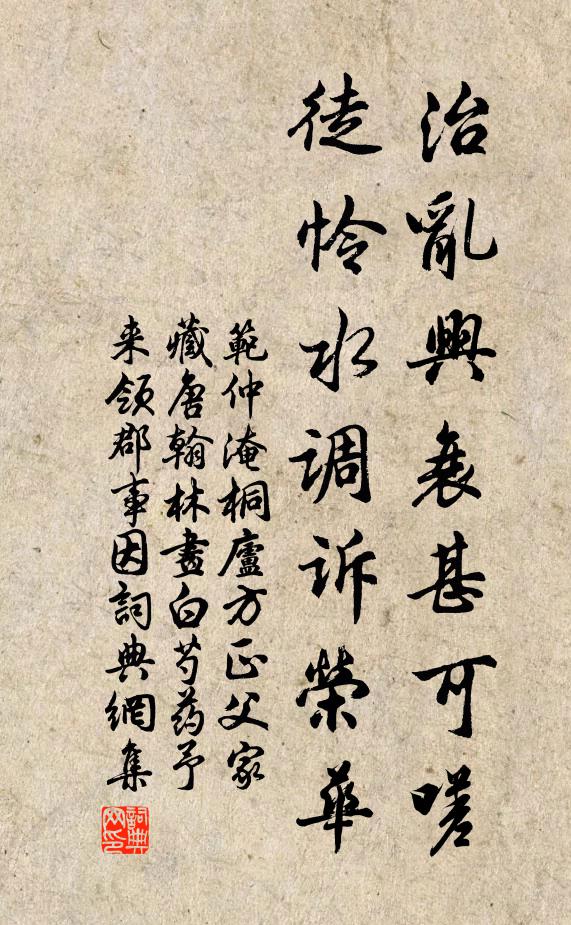 治亂興衰甚可嗟
徒怜水调诉榮華
範仲淹桐廬方正父家
藏唐翰林畫白芍药予
来领郡事因詞典網集
詞典网印